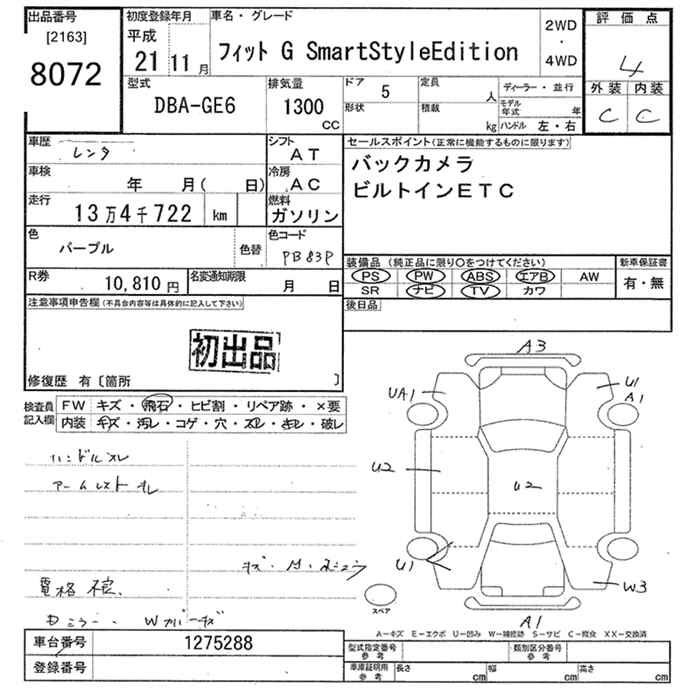 出品番号
[2163]
8072
初度登録年月
平成
21 11月
車名・グレード
フィット G SmartStyleEdition
2WD
・
4WD
評価点
4
外装 内装
C C
型式
DBA-GE6
排気量
1300
CC
ドア 5
形状
定員 人
積載 kg
ディーラー・並行
モデル年式 年
ハンドル 左・右
車歴
レンタ
シフト
AT
車検
年 月( 日)
冷房
AC
走行
13万4千722 km
燃料
ガソリン
色
パープル
色替
色コード
PB83P
R券
10,810円
名変通知期限
月 日
セールスポイント(正常に機能するものに限ります)
バックカメラ
ビルトインETC
装備品(純正品に限り○をつけてください)
PS PW ABS エアB AW
SR ナビ TV カワ
新車保証書
有・無
後日品
注意事項申告欄(不具合内容等は具体的に記入して下さい)
初出品
修復歴 有〔箇所 〕
検査員記入欄
FW キズ・飛石・ヒビ割・リペア跡・×要
内装 キズ・汚レ・コゲ・穴・スレ・キレ・破レ
ハンドルスレ
アームレストスレ
A3
UA1
U1
A1
U2
U2
U1
W3
A1
スペア
A−キズ E−エクボ U−凹み W−補修跡 S−サビ C−腐食 XX−交換済
車台番号
1275288
登録番号
型式指定番号
参考
類別区分番号
参考
車庫証明用
参考
長さ cm
幅 cm
高さ cm